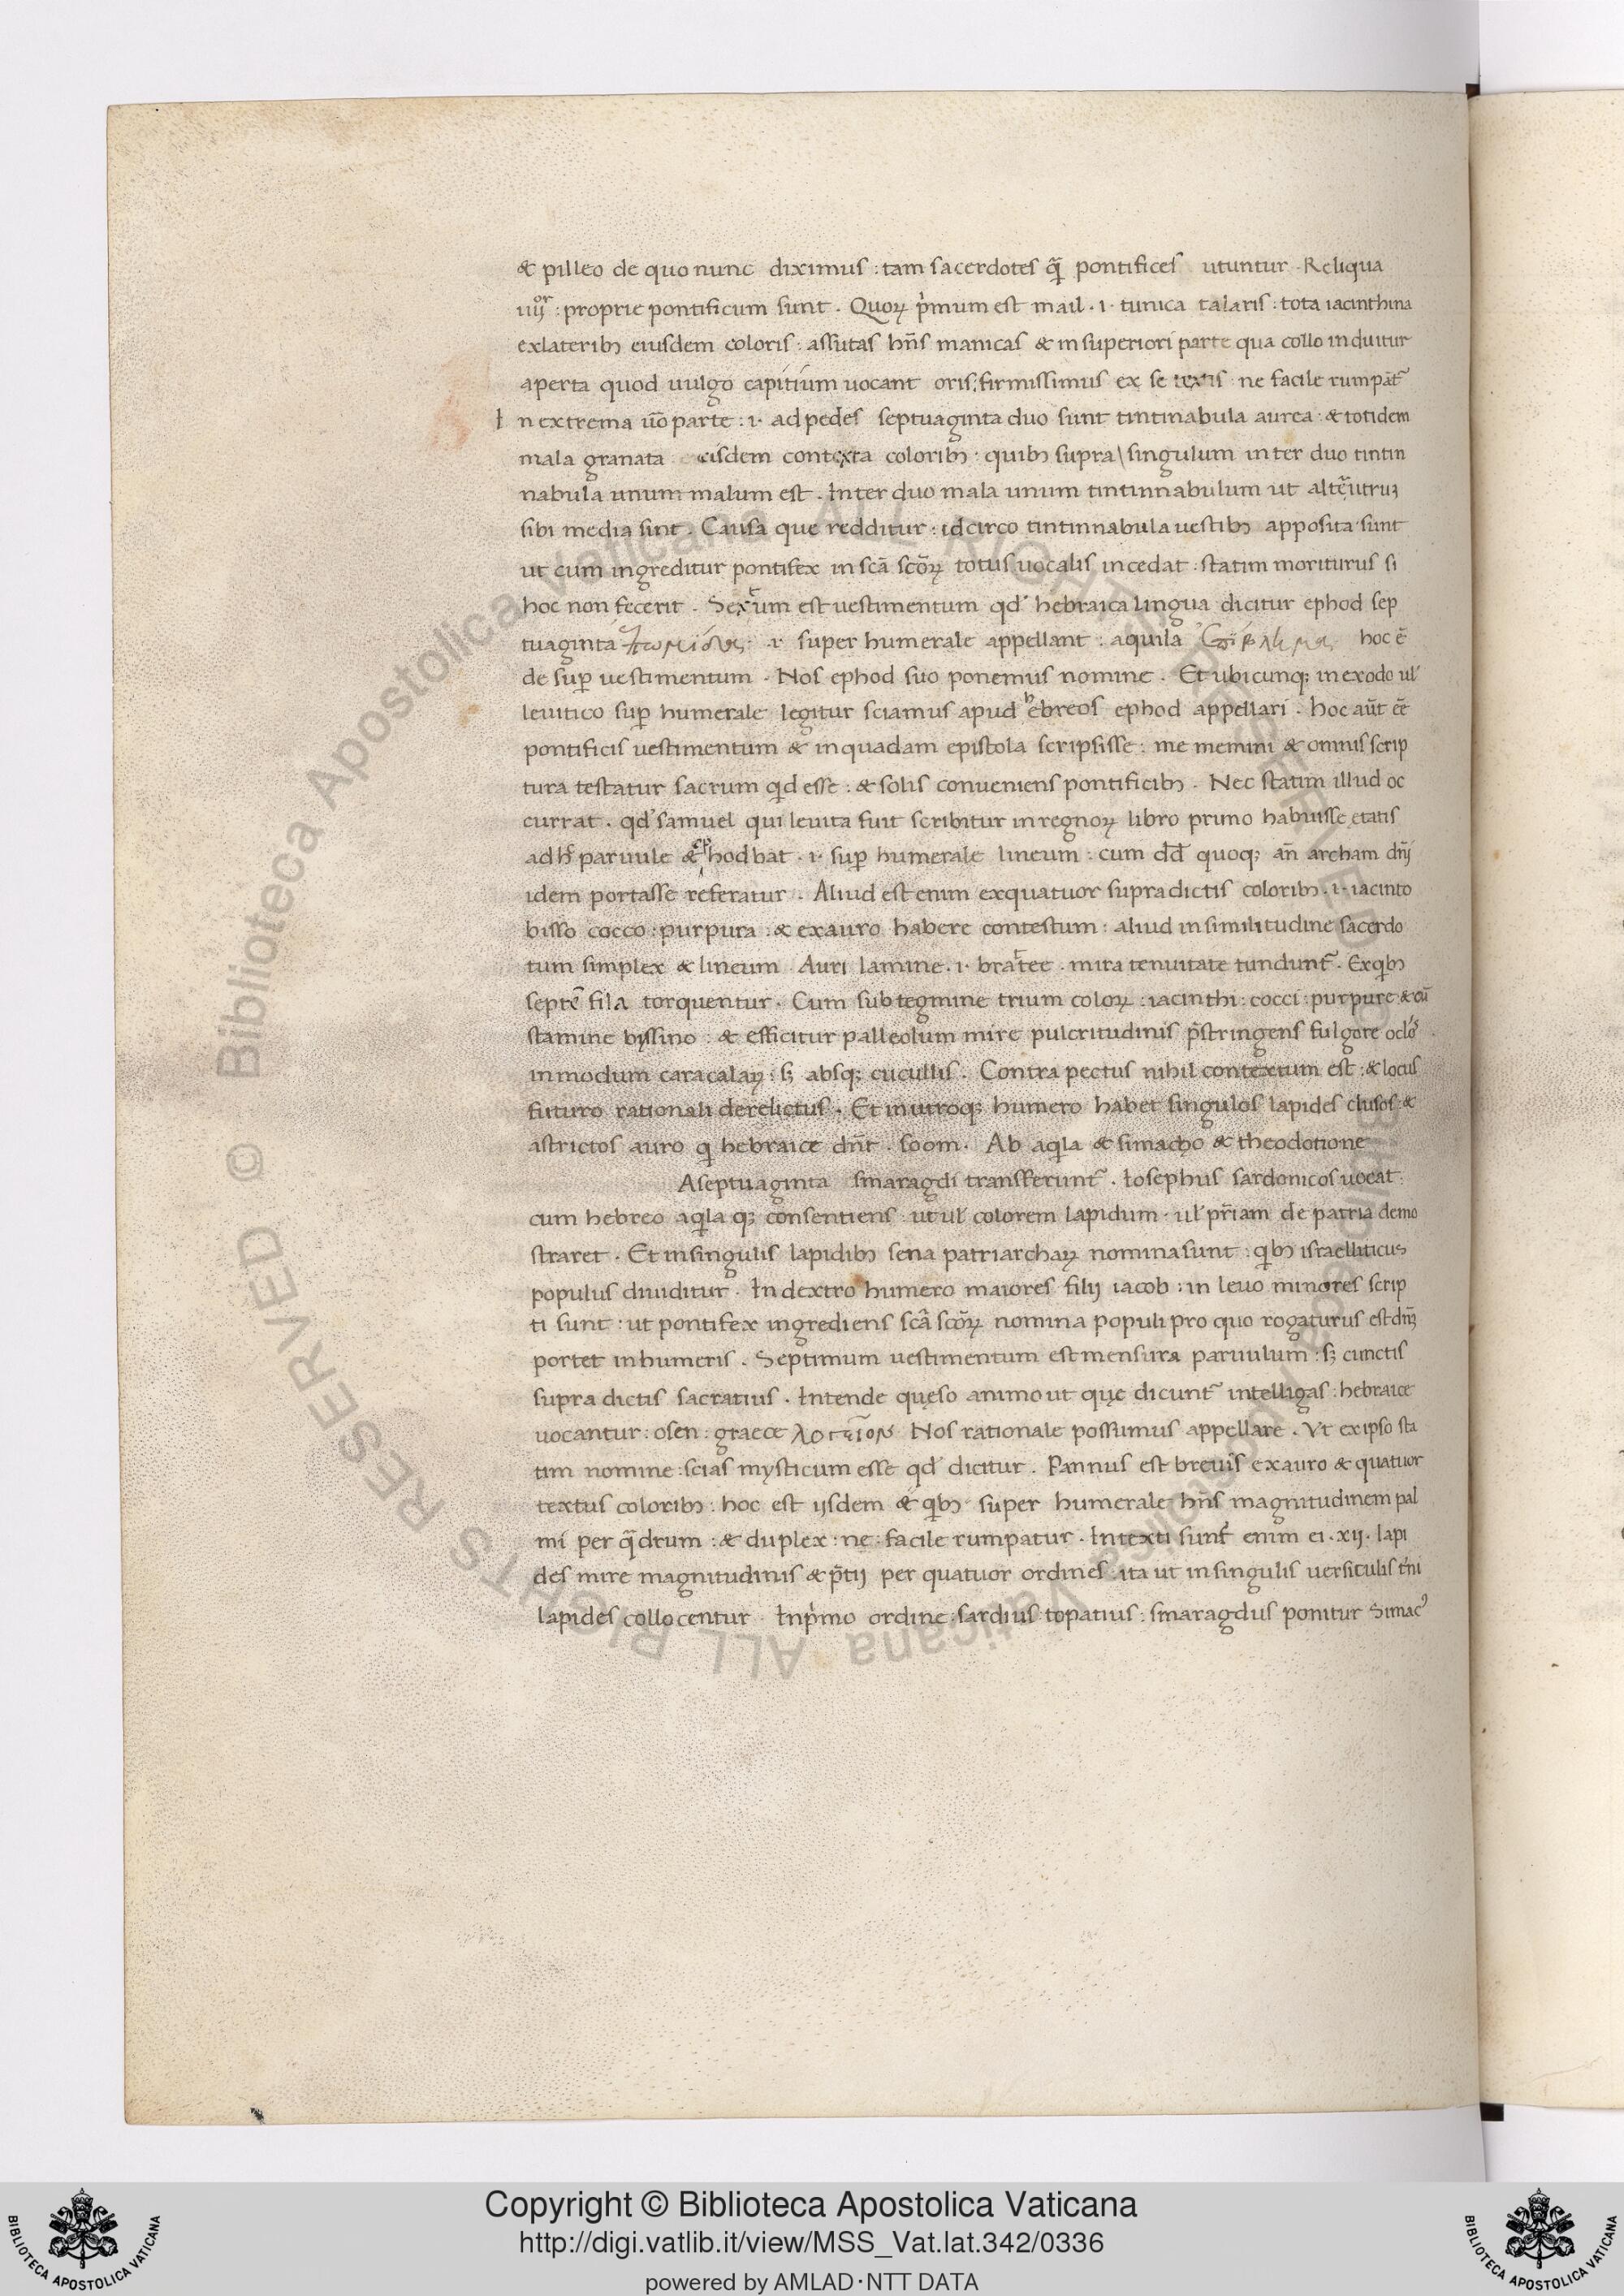 & pilleo de quo nunc diximus : tam sacerdotes q̃ pontifices utuntur . Reliqua
iiijor : proprie pontificum sunt . Quoꝝ p̾mum est mail . i . tunica talaris : tota iacinthina
exlateribꝫ eiusdem coloris : assutas hñs manicas & in superiori parte qua collo induitur
aperta quod uulgo capitium uocant oris : firmissimus ex se textis ne facile rumpat᷑
In extrema uo̅ parte : i . ad pedes septuaginta duo sunt tintinabula aurea : & totidem
mala granata eisdem contexta coloribꝫ : quibꝫ supra \ singulum inter duo tintin
nabula unum malum est . Inter duo mala unum tintinnabulum ut alteꝛ̃utruꝫ
sibi media sint . Causa que redditur : idcirco tintinnabula uestibꝫ apposita sunt
ut cum ingreditur pontifex in scã scõꝝ totus uocalis incedat : statim moriturus si
hoc non fecerit . Sextum est uestimentum qd̛ hebraica lingua dicitur ephod sep
tuaginta . i . super humerale appellant : aquila hoc ē
de suꝑ uestimentum . Nos ephod suo ponemus nomine . Et ubicunqꝫ in exodo ul̛
leuitico suꝑ humerale legitur sciamus apud hebreos ephod appellari . hoc aũt eē
pontificis uestimentum & in quadam epistola scripsisse : me memini & omnis scrip
tura testatur sacrum qd̛ esse : & solis conueniens pontificibꝫ . Nec statim illud oc
currat . qd̛ samuel qui leuita fuit scribitur in regnoꝝ libro primo habuisse etatis
adhᷤ paruule & ephod bat . i . suꝑ humerale lineum : cum dd̅ quoqꝫ añ archam dñj
idem portasse referatur . Aliud est enim exquatuor supradictis coloribꝫ . i . iacinto
bisso cocco : purpura : & exauro habere contestum : aliud in similitudine sacerdo
tum simplex & lineum . Auri lamine . i . bratee . mira tenuitate tundunt᷑ . Exqͥbꝫ
septē fila torquentur . Cum subtegmine trium coloꝝ : iacinthi : cocci : purpure & cū
stamine byssino : & efficitur palleolum mire pulcritudinis p̄stringens fulgore oclơs
in modum caracalaꝝ : sꝫ absqꝫ cucullis . Contra pectus nihil contextum est : & locus
futuro rationali derelictus . Et in utroqꝫ humero habet singulos lapides clusos : &
astrictos auro qͥ hebraice dñt᷑ . soom . Ab aqͥla & simacho & theodotione
A septuaginta smaragdi transferunt᷑ . Iosephus sardonicos uocat :
cum hebreo aqͥla qꝫ consentiens : ut ul̛ colorem lapidum . ul̛ pr̃iam de patria demo
straret . Et in singulis lapidibꝫ sena patriarchaꝝ nomina sunt : qͥbꝫ israelliticus
populus diuiditur . In dextro humero maiores filij iacob : in leuo minores scrip
ti sunt : ut pontifex ingrediens scã scõꝝ nomina populi pro quo rogaturus est dñꝫ
portet in humeris . Septimum uestimentum est mensura paruulum : sꝫ cunctis
supra dictis sacratius . Intende quęso animo ut quę dicunt᷑ intelligas : hebraice
uocantur : osen : graece λογεῖον Nos rationale possumus appellare . Vt ex ipso sta
tim nomine : scias mysticum esse qd̛ dicitur . Pannus est breuis exauro & quatuor
textus coloribꝫ : hoc est ijsdem & qͥbꝫ super humerale hñs magnitudinem pal
mi per qᷓdrum : & duplex : ne facile rumpatur . Intexti sunt enim ei . xij . lapi
des mire magnitudinis & p̄tij per quatuor ordines : ita ut in singulis uersiculis t̛ni
lapides collocentur . In p̾mo ordine : sardius topatius : smaragdus ponitur Simacꝰ
Copyright © Biblioteca Apostolica Vaticana
http://digi.vatlib.it/view/MSS_Vat.lat.342/0336
powered by AMLAD·NTT DATA
BIBLIOTECA APOSTOLICA VATICANA
BIBLIOTECA APOSTOLICA VATICANA
© Biblioteca Apostolica Vaticana ALL RIGHTS RESERVED
© Biblioteca Apostolica Vaticana ALL RIGHTS RESERVED